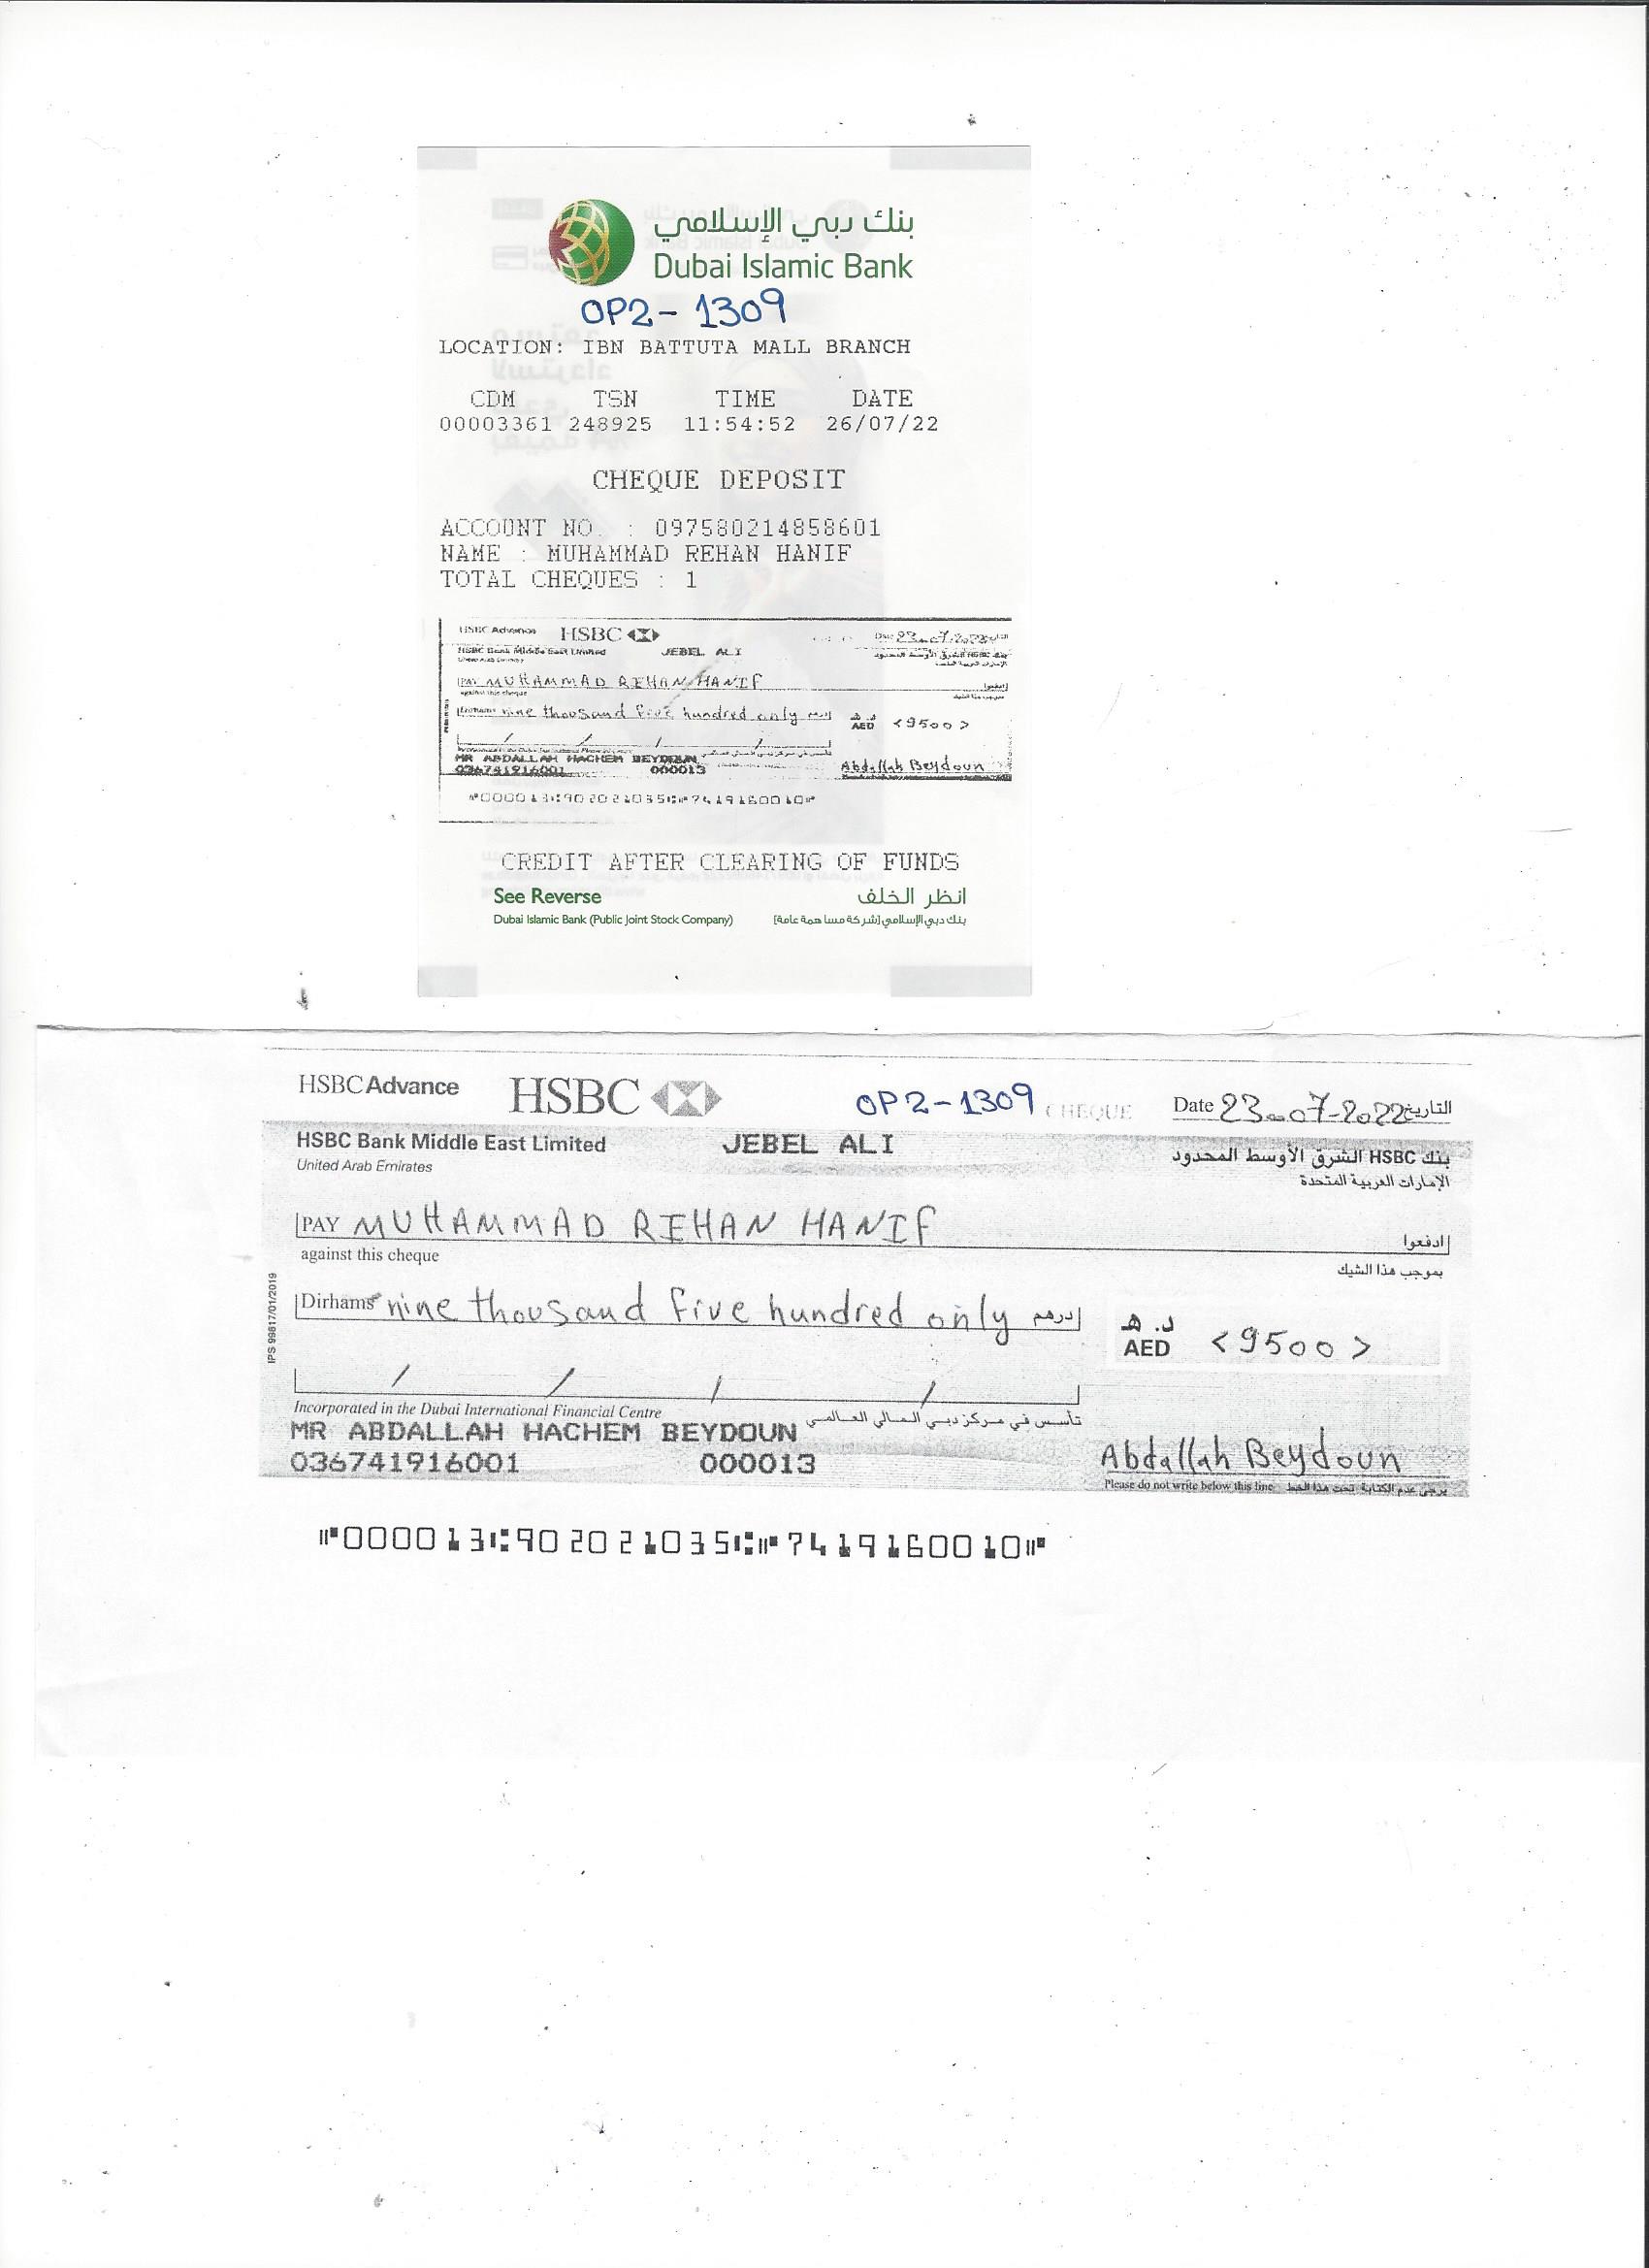 بنك دبي الإسلامي
Dubai Islamic Bank
OP2-1309
LOCATION: IBN BATTUTA MALL BRANCH
CDM TSN TIME DATE
00003361 248925 11:54:52 26/07/22
CHEQUE DEPOSIT
ACCOUNT NO. : 097580214858601
NAME : MUHAMMAD REHAN HANIF
TOTAL CHEQUES : 1
HSBC Advance HSBC Date 23-07-2022
HSBC Bank Middle East Limited JEBEL ALI
PAY MUHAMMAD REHAN HANIF
against this cheque
Dirhams nine thousand five hundred only AED <9500>
MR ABDALLAH HACHEM BEYDOUN
036741916001 000013 Abdallah Beydoun
⑈000013⑆902021035⑆⑈7419160010⑈
CREDIT AFTER CLEARING OF FUNDS
See Reverse انظر الخلف
Dubai Islamic Bank (Public Joint Stock Company) بنك دبي الإسلامي (شركة مساهمة عامة)
HSBC Advance HSBC OP2-1309 CHEQUE Date 23-07-2022 التاريخ
HSBC Bank Middle East Limited JEBEL ALI بنك HSBC الشرق الأوسط المحدود
United Arab Emirates الإمارات العربية المتحدة
PAY MUHAMMAD REHAN HANIF ادفعوا
against this cheque بموجب هذا الشيك
Dirhams nine thousand five hundred only درهم د.هـ
AED <9500>
IPS 99817/01/2019
Incorporated in the Dubai International Financial Centre تأسس في مركز دبي المالي العالمي
MR ABDALLAH HACHEM BEYDOUN
036741916001 000013 Abdallah Beydoun
Please do not write below this line يرجى عدم الكتابة تحت هذا الخط
⑈000013⑆902021035⑆⑈7419160010⑈